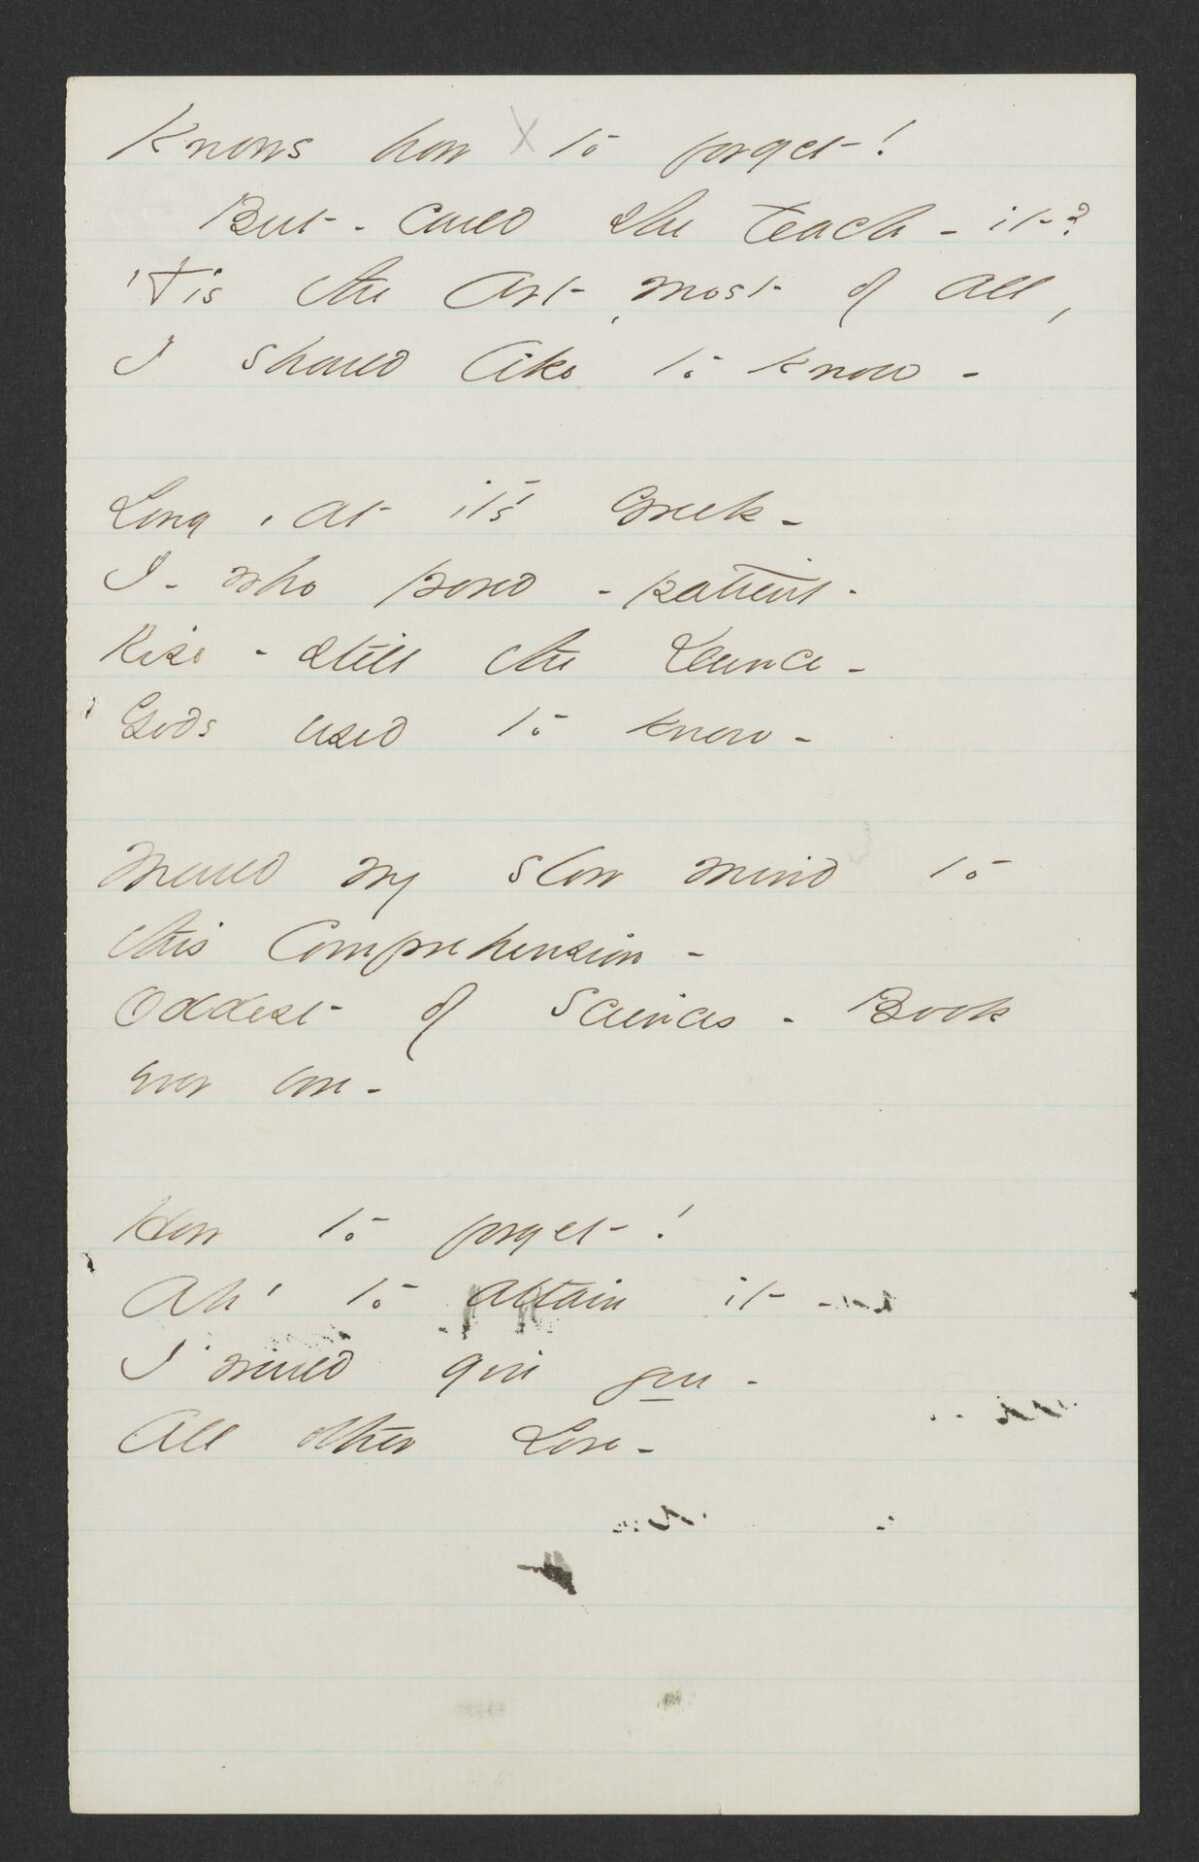 Knows how to forget!
But - could she teach - it?
'Tis the Art, most of all,
I should like to know -
Long, at it's Greek -
I - who pored - patient -
Rise - still the Dunce -
Gods used to know -
Mould my slow mind to
this Comprehension -
Oddest of Sciences - Book
ever bore -
How to forget!
Ah' to attain it -
I would give you -
All other Lore -